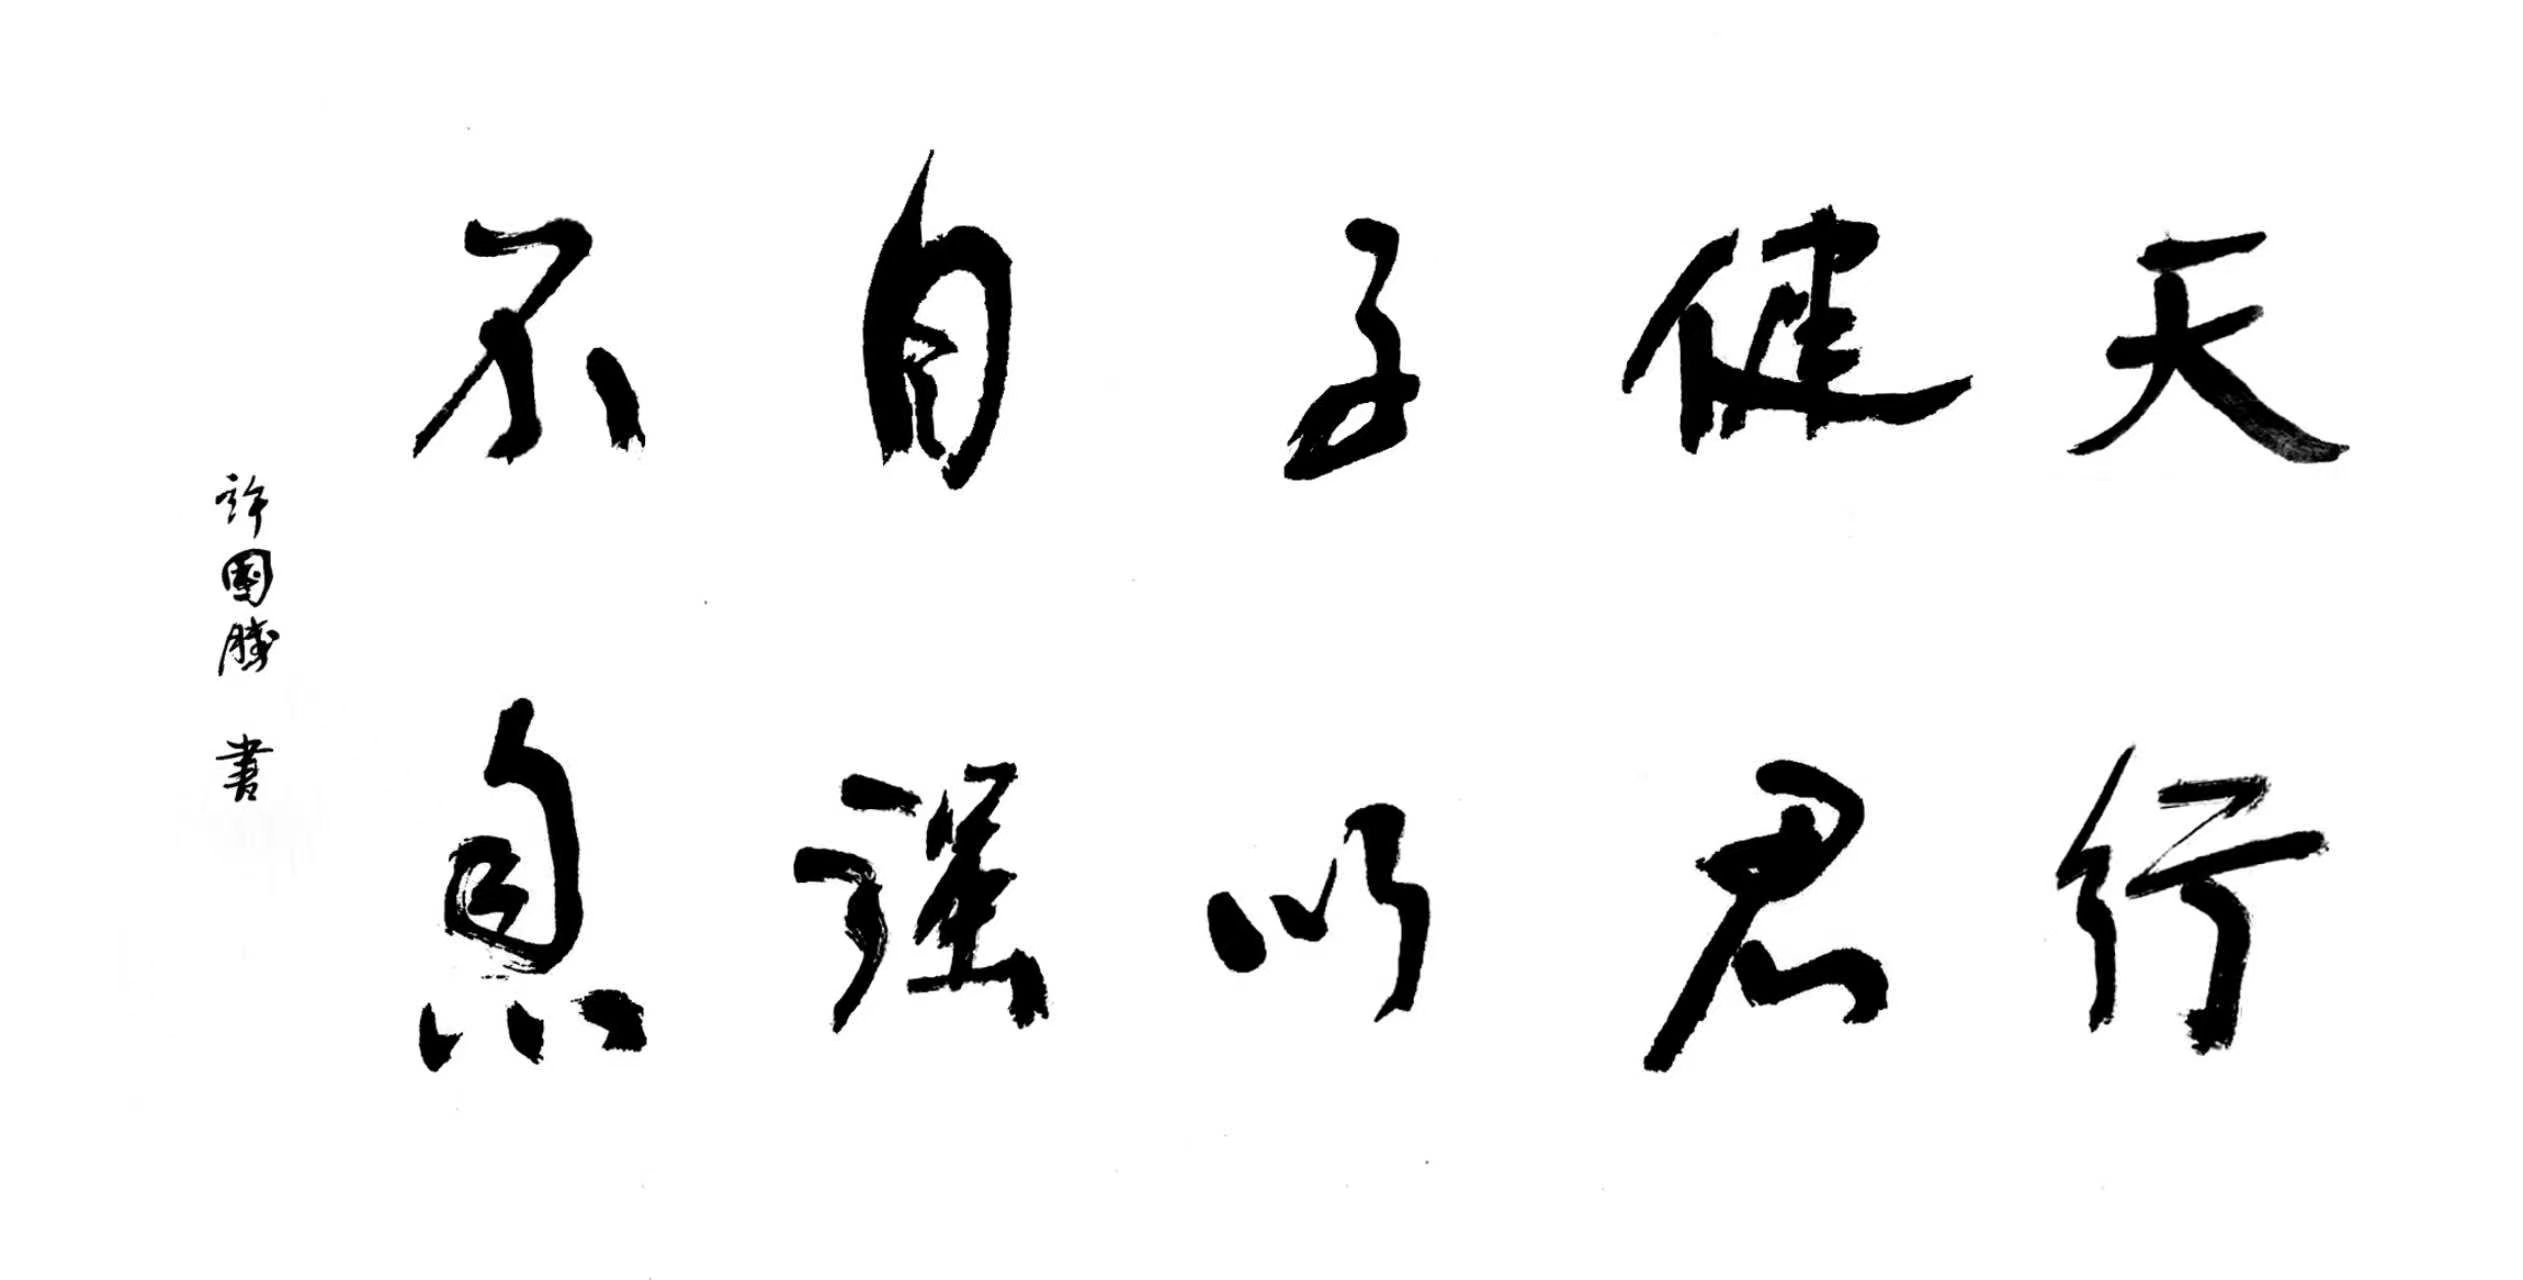 天行
健君
子以
自强
不息
許國勝 書